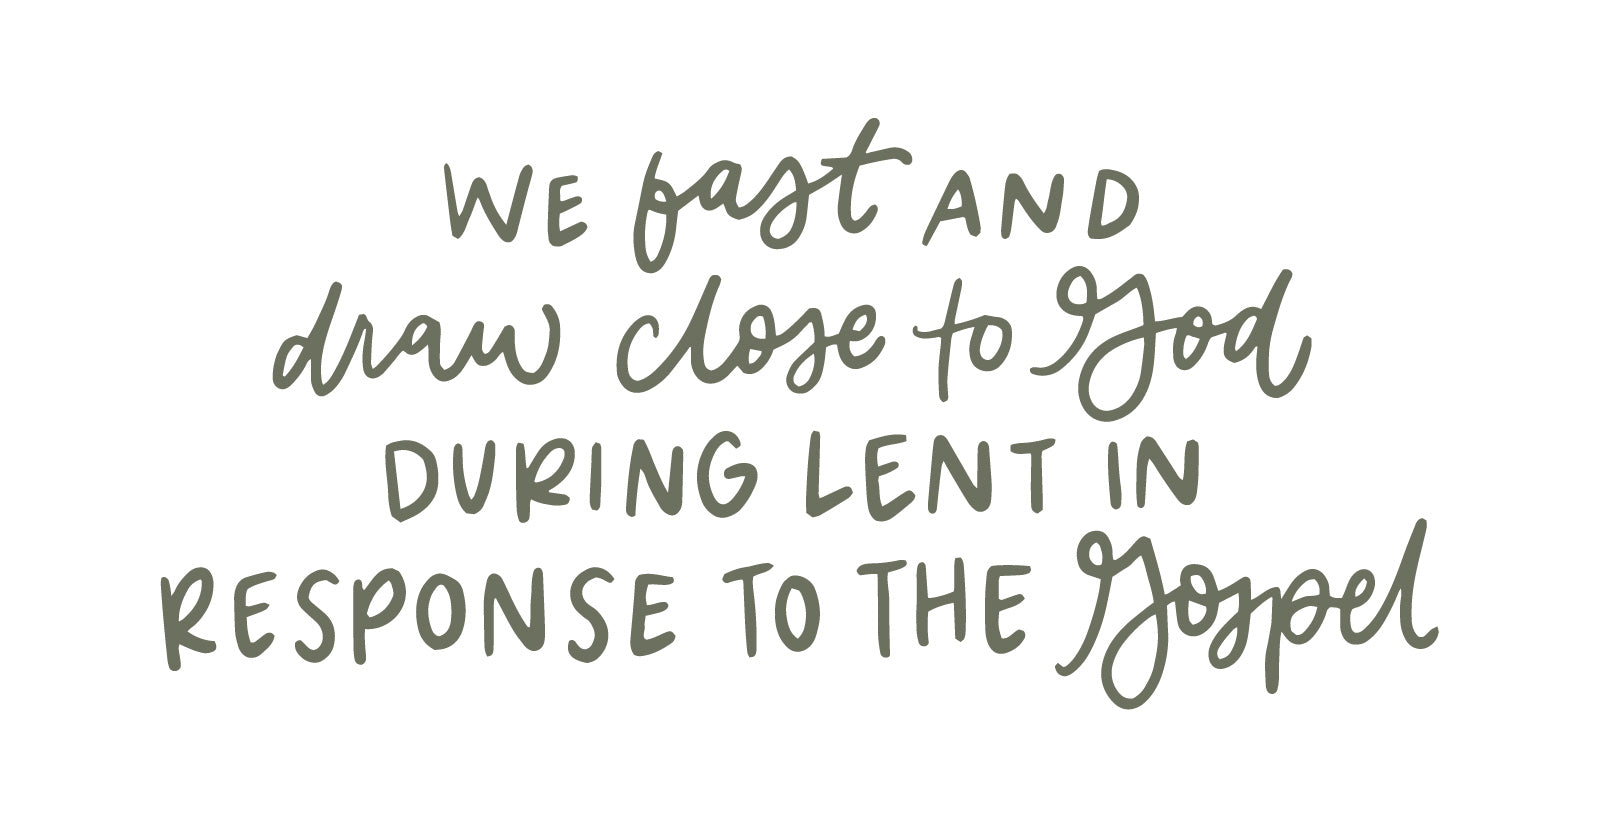 WE fast AND
draw close to God
DURING LENT IN
RESPONSE TO THE Gospel